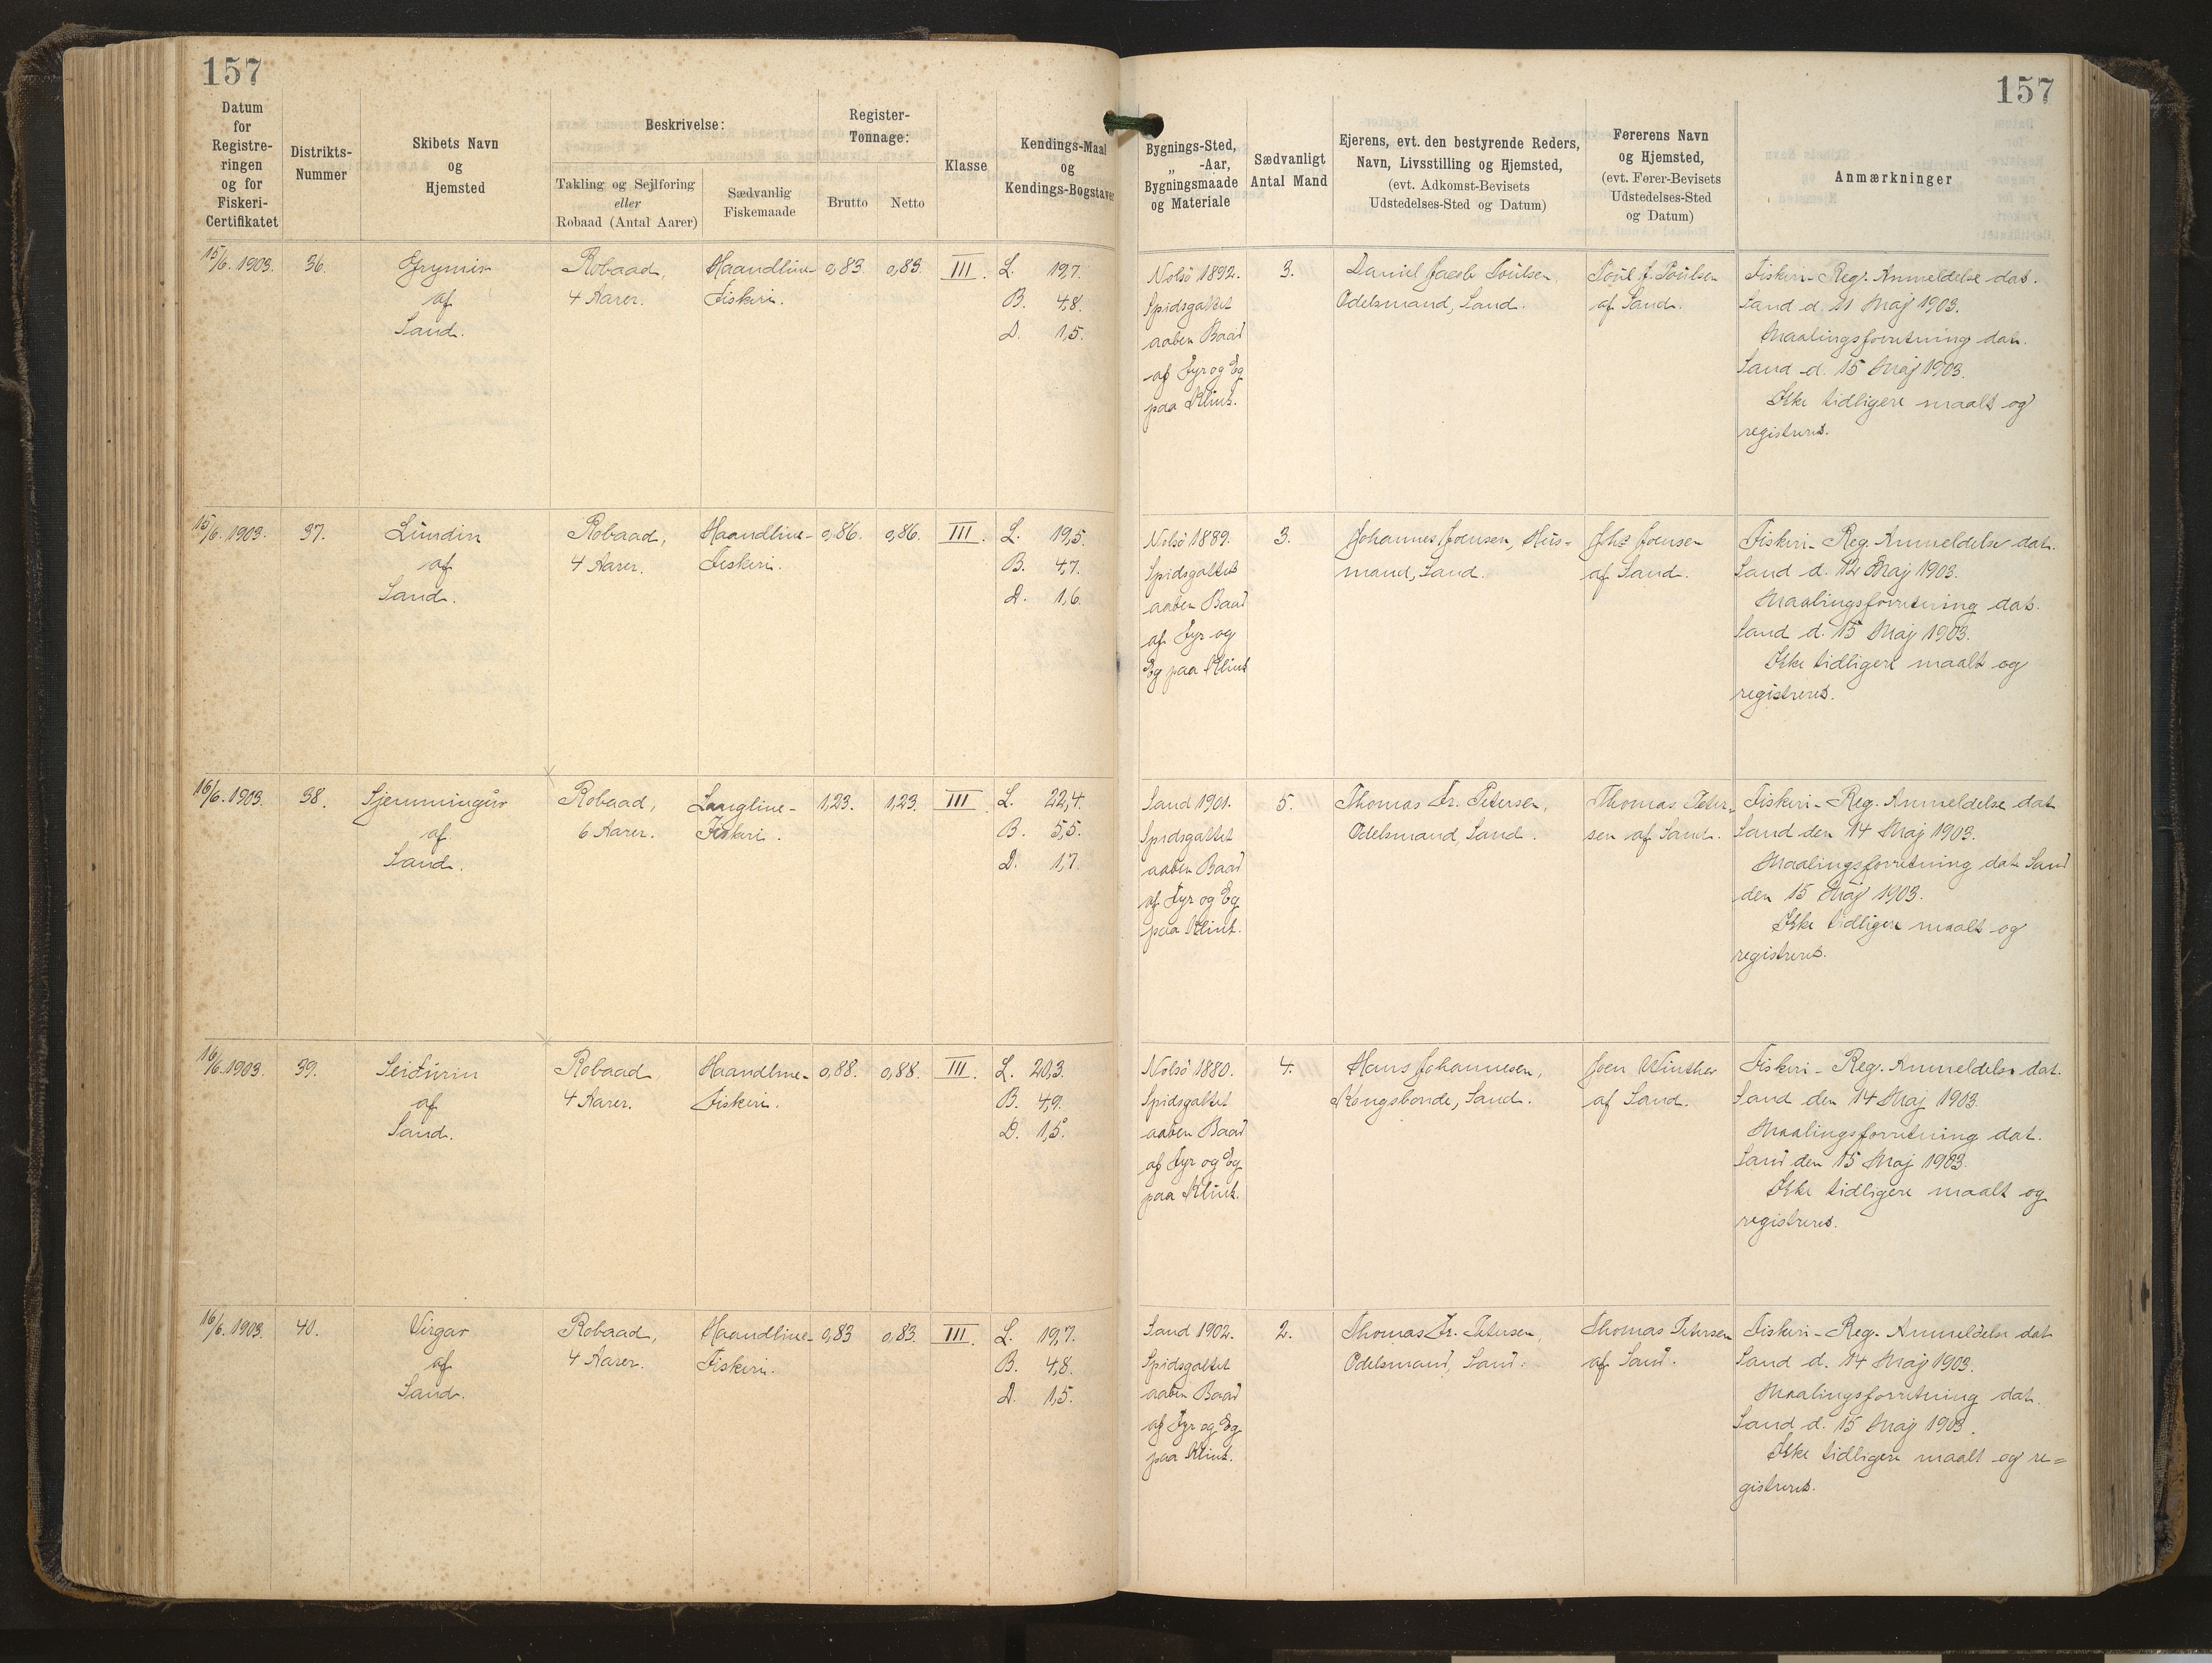 157
157
Datum
for
Registre-
ringen
og for
Fiskeri-
Certifikatet
Distrikts-
Nummer
Skibets Navn
og
Hjemsted
Beskrivelse:
Takling og Sejlføring
eller
Robaad (Antal Aarer)
Sædvanlig
Fiskemaade
Register-
Tonnage:
Brutto
Netto
Klasse
Kendings-Maal
og
Kendings-Bogstaver
Bygnings-Sted,
„ -Aar,
Bygningsmaade
og Materiale
Sædvanligt
Antal Mand
Ejerens, evt. den bestyrende Reders,
Navn, Livsstilling og Hjemsted,
(evt. Adkomst-Bevisets
Udstedelses-Sted og Datum)
Førerens Navn
og Hjemsted,
(evt. Fører-Bevisets
Udstedelses-Sted
og Datum)
Anmærkninger
15/6. 1903.
36.
af
Sand.
Robaad,
4 Aarer.
Haandline-
Fiskeri.
0,83.
0,83.
III.
L. 19,7.
B. 4,8.
D. 1,5.
Nolsö 1892.
Spidsgattet
aaben Baad
af Fyr og Eg
paa Klink.
3.
Daniel Jacob Poulsen,
Odelsmand, Sand.
Poul J. Poulsen
af Sand.
Fiskeri-Reg. Anmeldelse dat.
Sand d. 11 Maj 1903.
Maalingsforretning dat.
Sand d. 15 Maj 1903.
Ikke tidligere maalt og
registreret.
15/6. 1903.
37.
Lundin
af
Sand.
Robaad,
4 Aarer.
Haandline-
Fiskeri.
0,86.
0,86.
III.
L. 19,5.
B. 4,7.
D. 1,6.
Nolsö 1889.
Spidsgattet
aaben Baad
af Fyr og
Eg paa Klink
3.
Johannes Joensen, Hus-
mand, Sand.
Jhs Joensen
af Sand.
Fiskeri-Reg. Anmeldelse dat.
Sand d. 12 Maj 1903.
Maalingsforretning dat.
Sand d. 15 Maj 1903.
Ikke tidligere maalt og
registreret.
16/6. 1903.
38.
Sjemmingur
af
Sand.
Robaad,
6 Aarer.
Langline-
Fiskeri.
1,23.
1,23.
III.
L. 22,4.
B. 5,5.
D. 1,7.
Sand 1901.
Spidsgattet
aaben Baad
af Fyr og Eg
paa Klink.
5.
Thomas Fr. Petersen,
Odelsmand, Sand.
Thomas Peter-
sen af Sand.
Fiskeri-Reg. Anmeldelse dat
Sand den 14 Maj 1903.
Maalingsforretning dat Sand
den 15 Maj 1903.
Ikke tidligere maalt og
registreret.
16/6. 1903.
39.
Seidurin
af
Sand.
Robaad
4 Aarer.
Haandline-
Fiskeri.
0,88.
0,88.
III.
L. 20,3.
B. 4,9.
D. 1,5.
Nolsö 1880.
Spidsgattet
aaben Baad
af Fyr og Eg
paa Klink.
4.
Hans Johannesen,
Kongsbonde, Sand.
Joen Winther
af Sand.
Fiskeri-Reg. Anmeldelse dat.
Sand den 14 Maj 1903.
Maalingsforretning dat.
Sand den 15 Maj 1903.
Ikke tidligere maalt og
registreret.
16/6. 1903.
40.
Virgar
af
Sand.
Robaad,
4 Aarer.
Haandline-
Fiskeri.
0,83
0,83.
III.
L. 19,7.
B. 4,8.
D. 1,5.
Sand 1902.
Spidsgattet
aaben Baad
af Fyr og Eg
paa Klink.
2.
Thomas Fr. Petersen,
Odelsmand, Sand.
Thomas Petersen
af Sand.
Fiskeri-Reg. Anmeldelse dat
Sand d. 14 Maj 1903.
Maalingsforretning dat.
Sand d. 15 Maj 1903.
Ikke tidligere maalt og re=
gistreret.